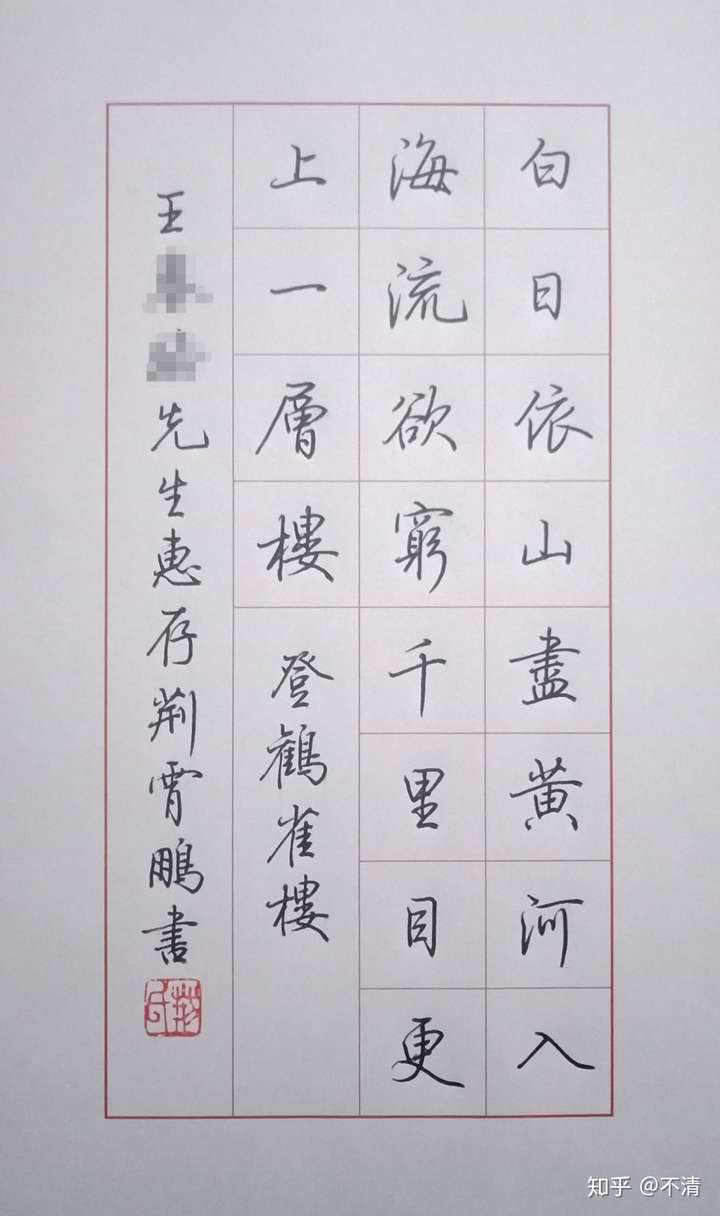 白日依山盡黄河入
海流欲窮千里目更
上一層樓 登鶴雀樓
王 先生惠存荆霄鵬書
知乎 @不清